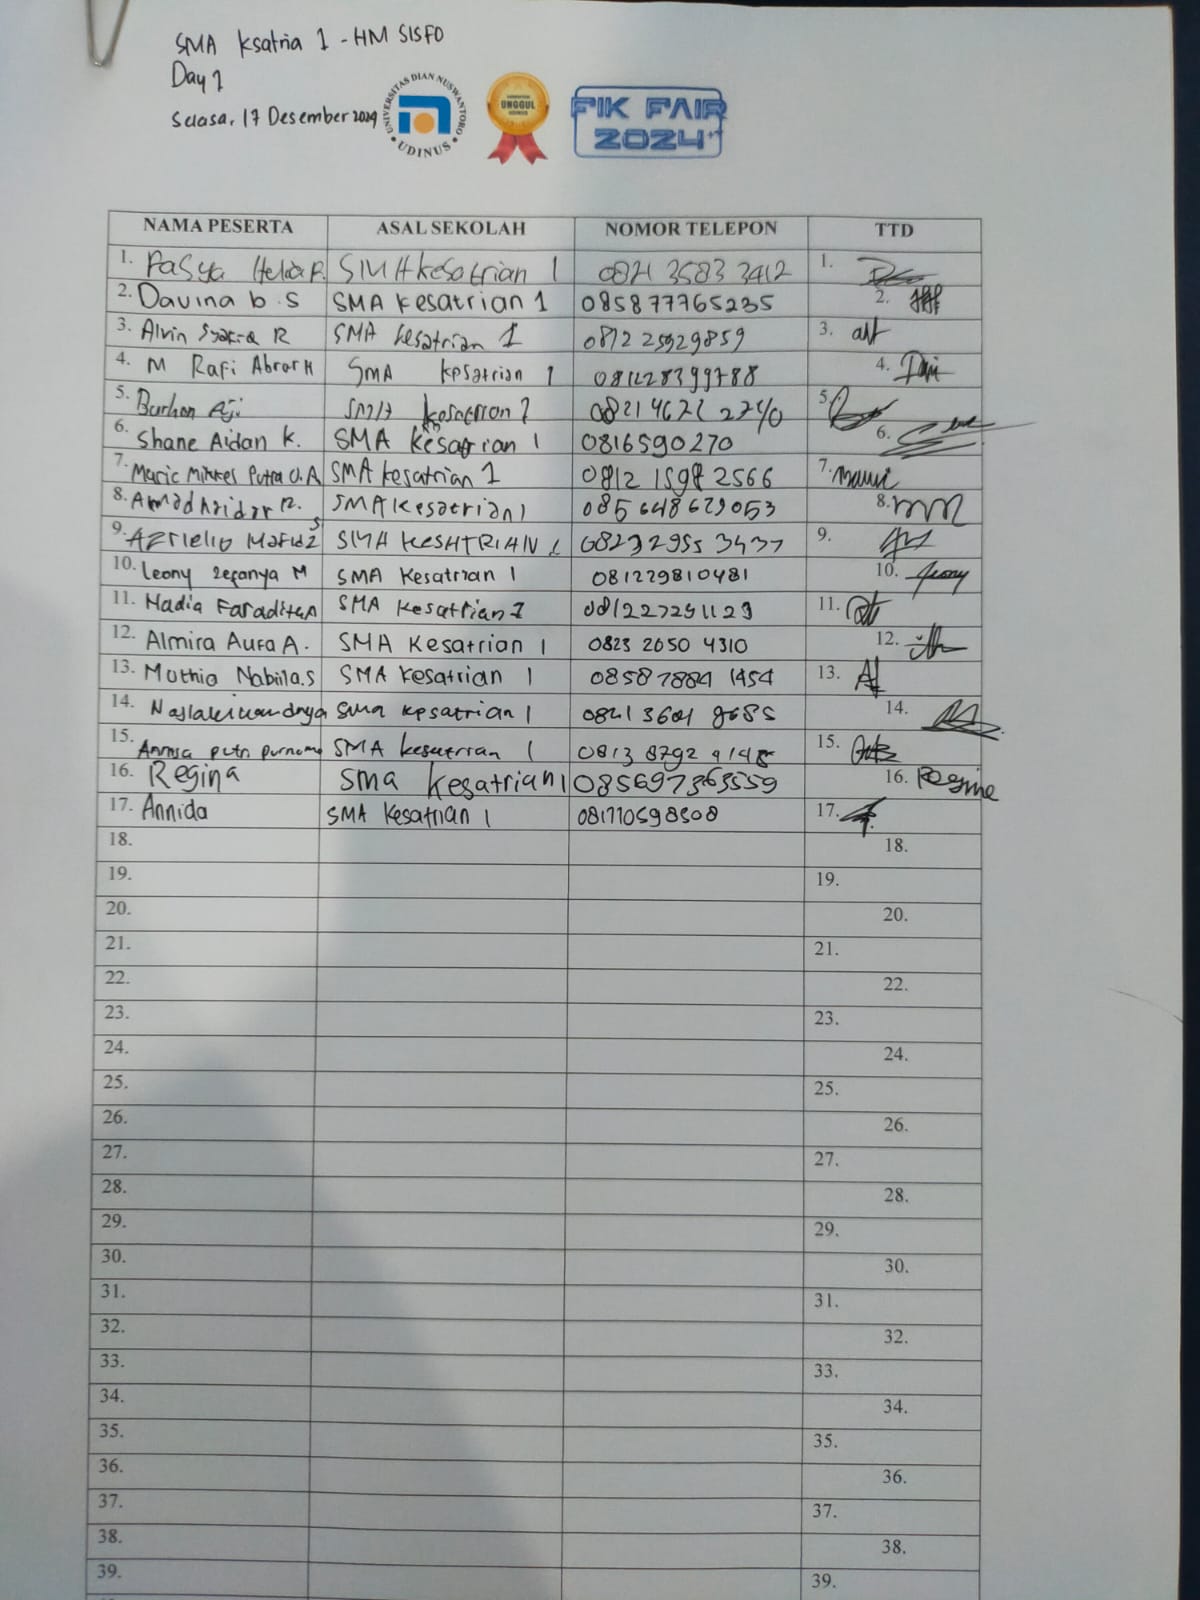 SMA Ksatria 1 - HM SISFO
Day 1
Selasa, 17 Desember 2024
UNIVERSITAS DIAN NUSWANTORO
UDINUS
UNGGUL
FIK FAIR
2024
NAMA PESERTA ASAL SEKOLAH NOMOR TELEPON TTD
1. Pasya Helia P. SMA kesatrian 1 0821 3583 3412 1.
2. Davina b.S SMA kesatrian 1 085877765235 2.
3. Alvin R SMA kesatrian 1 081225929859 3.
4. M Rafi Abror H SMA kesatrian 1 081228399788 4.
5. Burhan Aji SMA kesatrian 1 5.
6. Shane Aidan K. SMA kesatrian 1 0816590270 6.
7. Mikkel Putra O.A SMA kesatrian 1 0812 1598 2566 7.
8. SMA kesatrian 1 085648629053 8.
9. SMA KESATRIAN 1 08232955 3437 9.
10. Leony Zefanya M SMA Kesatrian 1 081229810481 10. Leony
11. Nadia SMA Kesatrian 1 081227251129 11.
12. Almira Aura A. SMA Kesatrian 1 0823 2050 4310 12.
13. Muthia Nabila.S SMA Kesatrian 1 08587884 1454 13.
14. SMA kesatrian 1 14.
15. Annisa putri purnomo SMA kesatrian 1 15.
16. Regina sma kesatrian 1 085697363559 16. Regina
17. Annida SMA Kesatrian 1 081770598508 17.
18. 18.
19. 19.
20. 20.
21. 21.
22. 22.
23. 23.
24. 24.
25. 25.
26. 26.
27. 27.
28. 28.
29. 29.
30. 30.
31. 31.
32. 32.
33. 33.
34. 34.
35. 35.
36. 36.
37. 37.
38. 38.
39. 39.